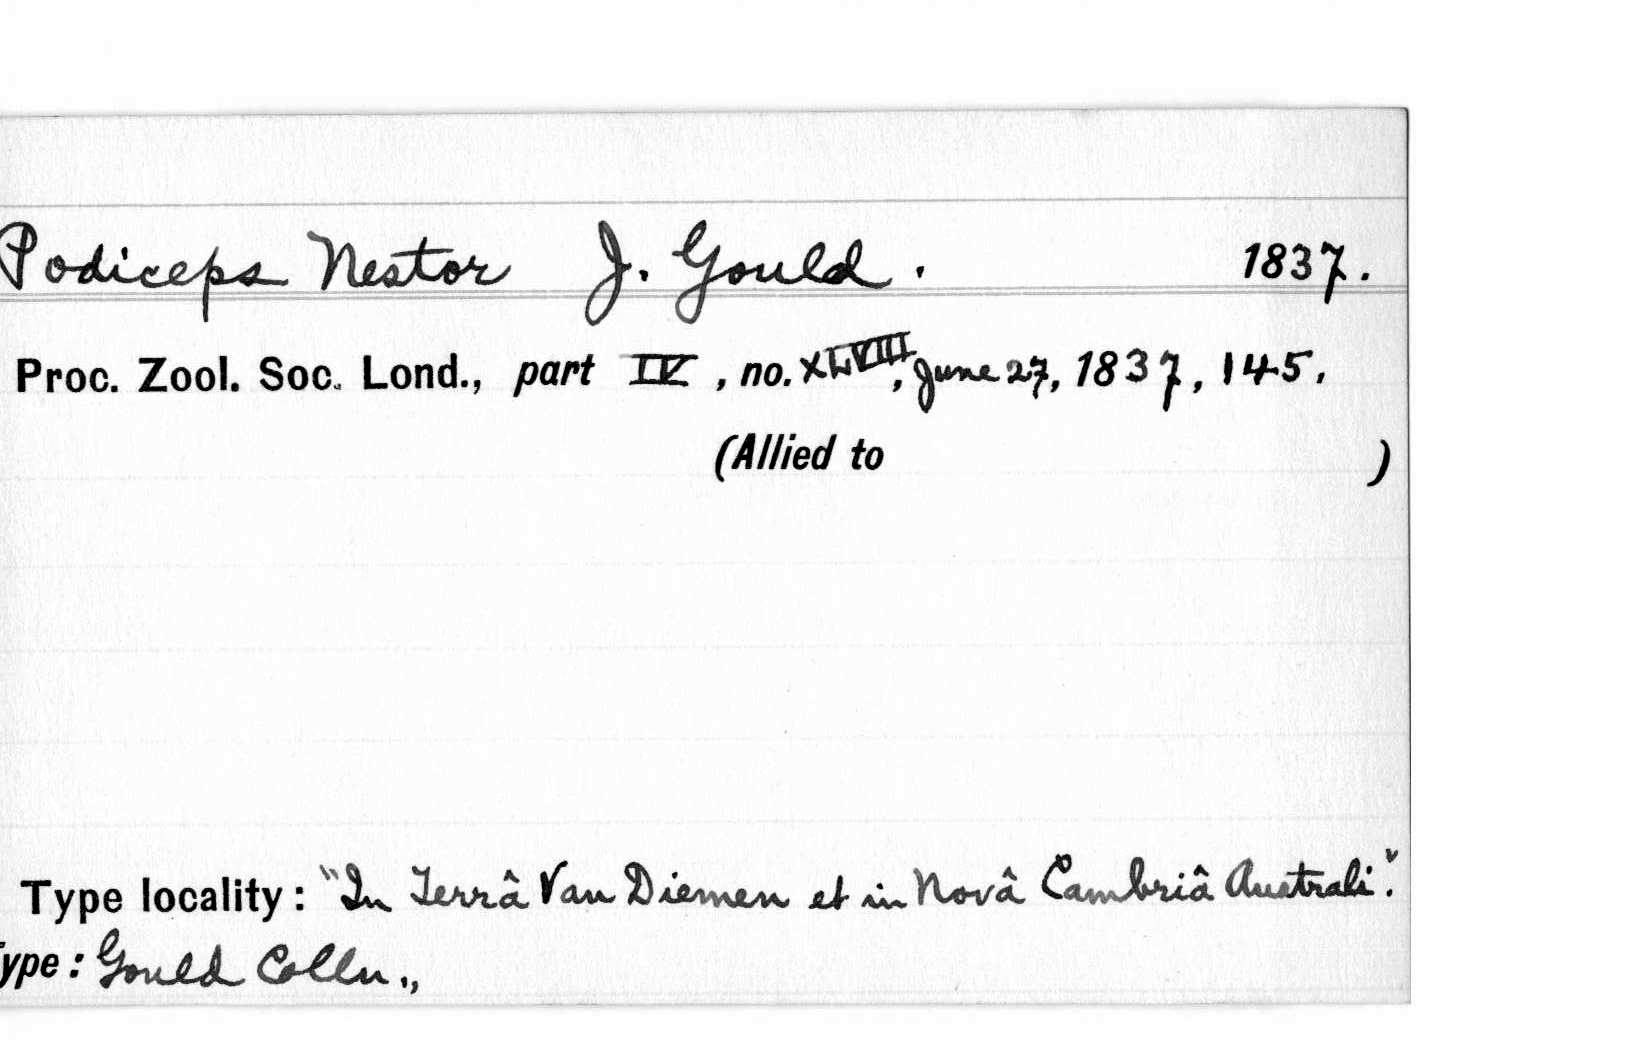 Podiceps Nestor J. Gould. 1837.
Proc. Zool. Soc. Lond., part IV, no. XLVIII, June 27, 1837, 145.
(Allied to )
Type locality: "In Terrâ Van Diemen et in Novâ Cambriâ Australi".
Type: Gould Colln.,